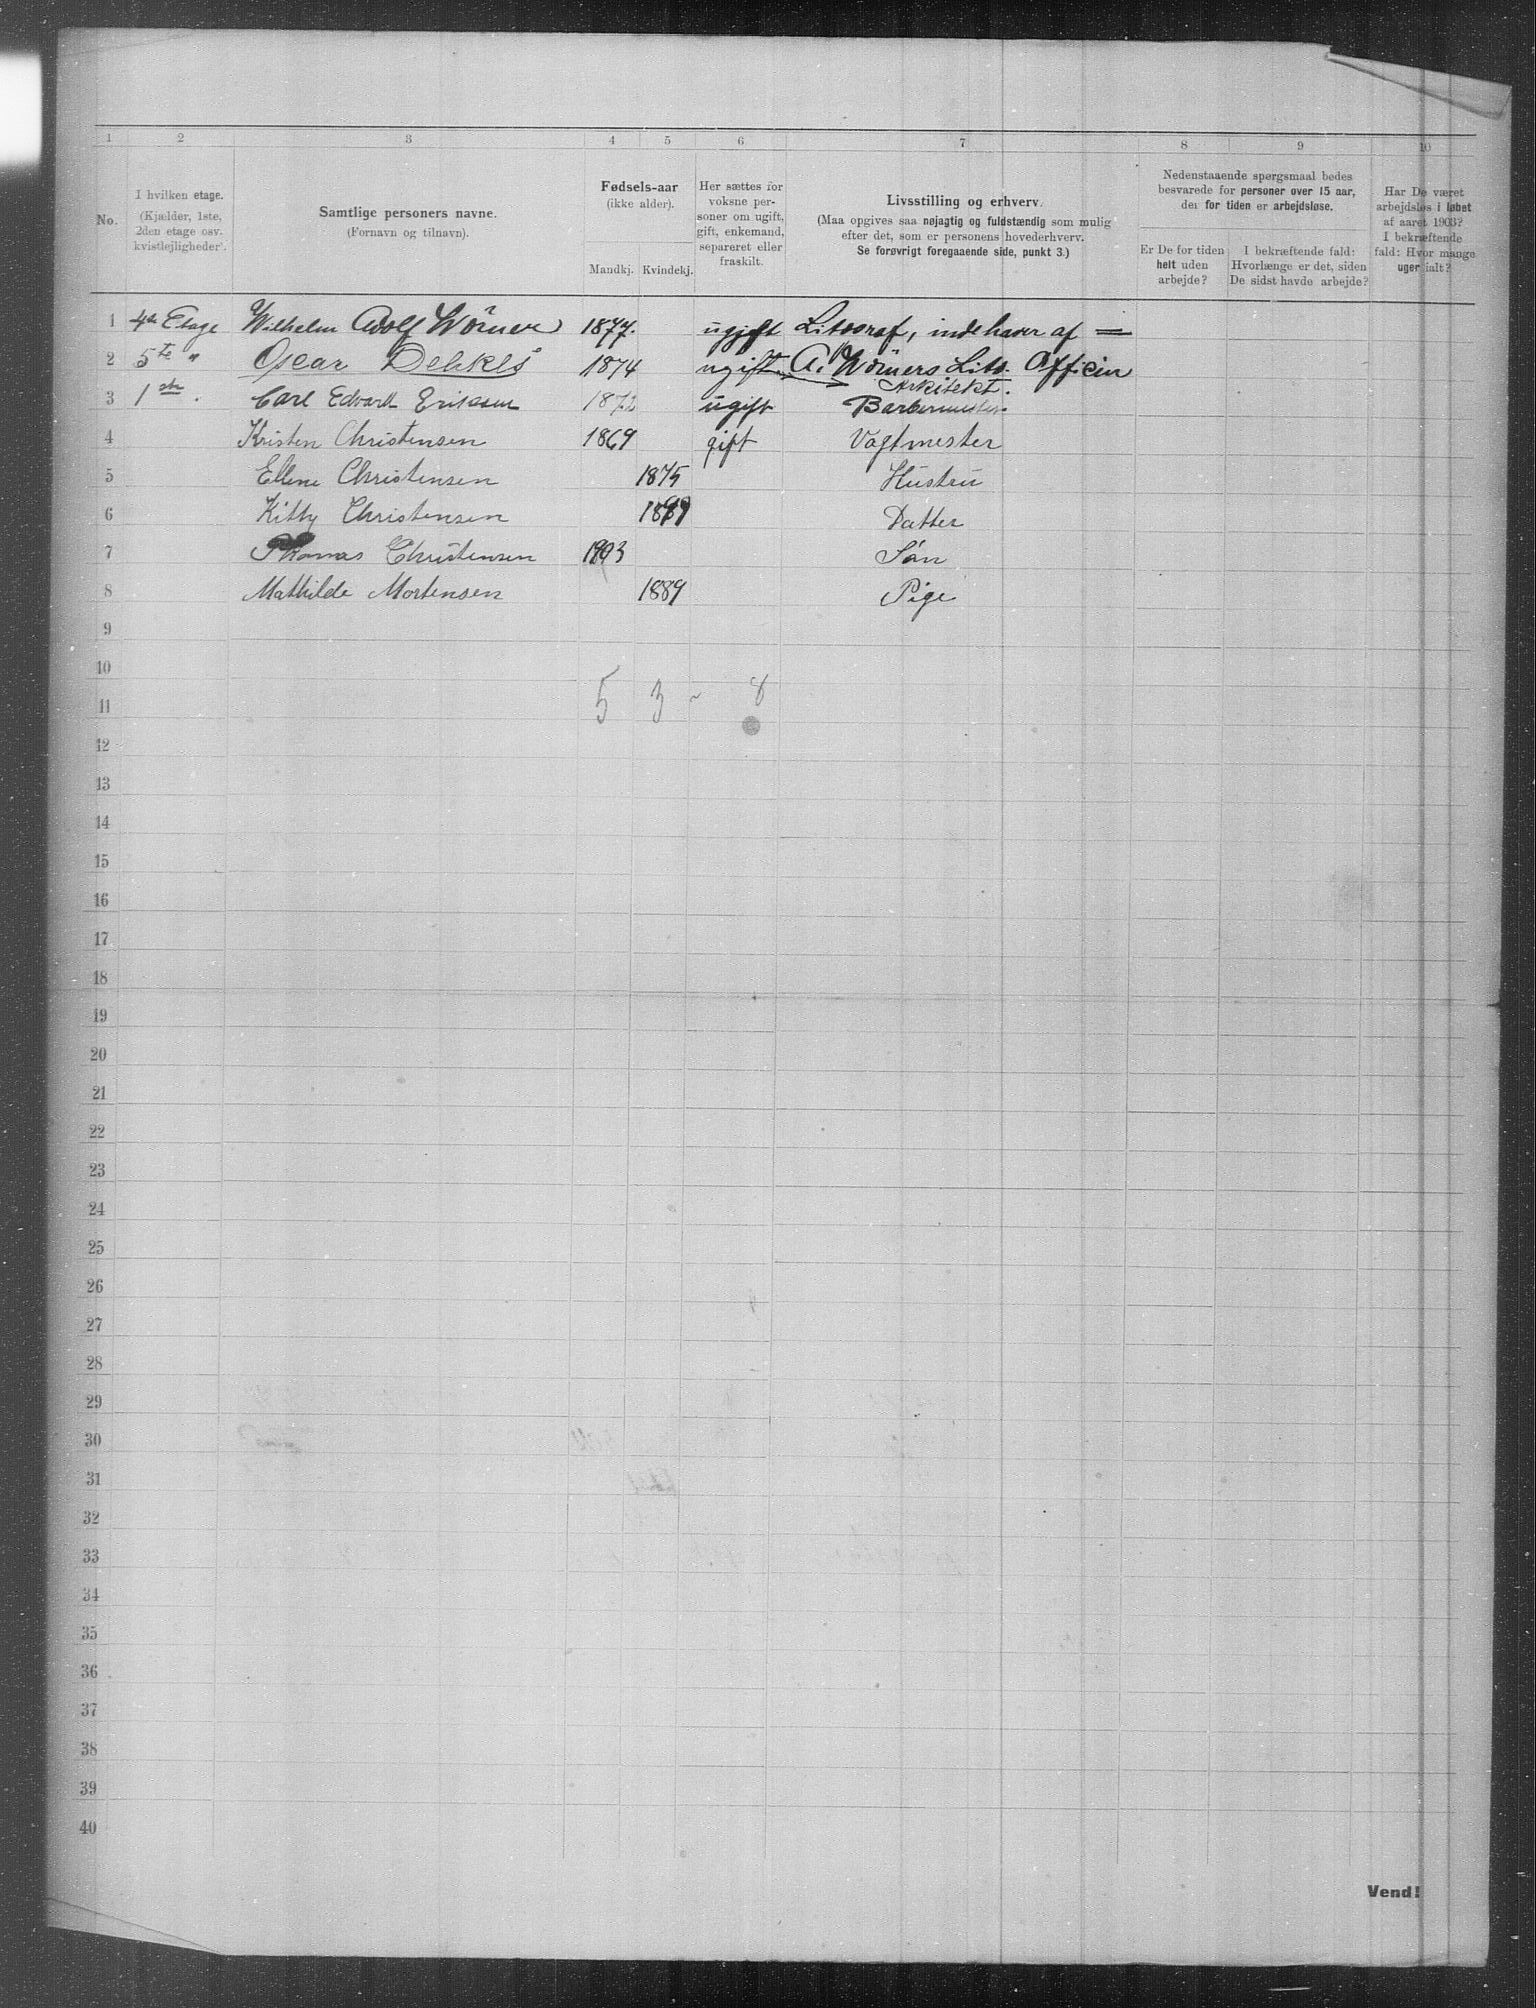 1 2 3 4 5 6 7 8 9 10
No.
I hvilken etage.
(Kjælder, 1ste,
2den etage osv.
kvistlejligheder).
Samtlige personers navne.
(Fornavn og tilnavn).
Fødsels-aar
(ikke alder).
Mandkj. Kvindekj.
Her sættes for
voksne per-
soner om ugift,
gift, enkemand,
separeret eller
fraskilt.
Livsstilling og erhverv.
(Maa opgives saa nøjagtig og fuldstændig som mulig
efter det, som er personens hovederhverv.
Se forøvrigt foregaaende side, punkt 3.)
Nedenstaaende spørgsmaal bedes
besvarede for personer over 15 aar,
der for tiden er arbejdsløse.
Er De for tiden
helt uden
arbejde?
I bekræftende fald:
Hvorlænge er det, siden
De sidst havde arbejde?
Har De været
arbejdsløs i løbet
af aaret 1903?
I bekræftende
fald: Hvor mange
uger ialt?
1 4de Etage Wilhelm Adolf Wörner 1877. ugift Litograf, indehaver af =
2 5te " Oscar 1874 ugift A. Wörners Lito. Officin
Arkitekt.
3 1ste . Carl Edvard Eriksen 1872 ugift Barbermester
4 Kristen Christensen 1869 gift Vagtmester
5 Ellene Christensen 1875 Hustru
6 Kitty Christensen Datter
7 Thomas Christensen Søn
8 Mathilde Mortensen 1889 Pige
9
10
5 3 - 8
11
12
13
14
15
16
17
18
19
20
21
22
23
24
25
26
27
28
29
30
31
32
33
34
35
36
37
38
39
40
Vend!